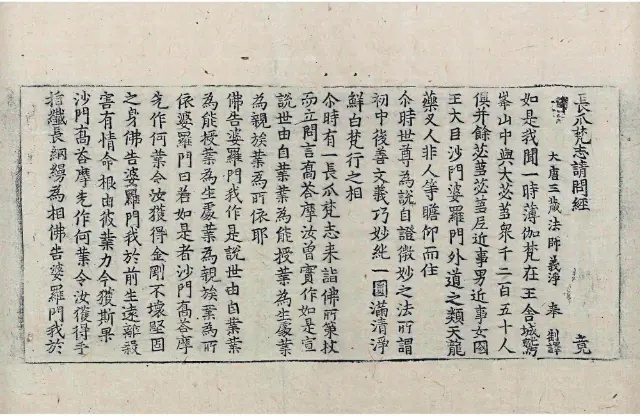 長爪梵志請問經 竟
大唐三藏法師義淨 奉 制譯
如是我聞一時薄伽梵在王舍城鷲
峯山中與大苾芻衆千二百五十人
俱并餘苾芻苾芻尼近事男近事女國
王大臣沙門婆羅門外道之類天龍
藥叉人非人等瞻仰而住
尒時世尊為說自證微妙之法所謂
初中後善文義巧妙純一圓滿清淨
鮮白梵行之相
尒時有一長爪梵志来詣佛所策杖
而立問言髙荅摩汝曾實作如是宣
說世由自業業為能授業為生處業
為親族業為所依耶
佛告婆羅門我作是說世由自業業
為能授業為生處業為親族業為所
依婆羅門曰若如是者沙門髙荅摩
先作何業令汝獲得金剛不壞堅固
之身佛告婆羅門我於前生遠離殺
害有情命根由彼業力今獲斯果
沙門髙荅摩先作何業令汝獲得手
指纖長網縵為相佛告婆羅門我於